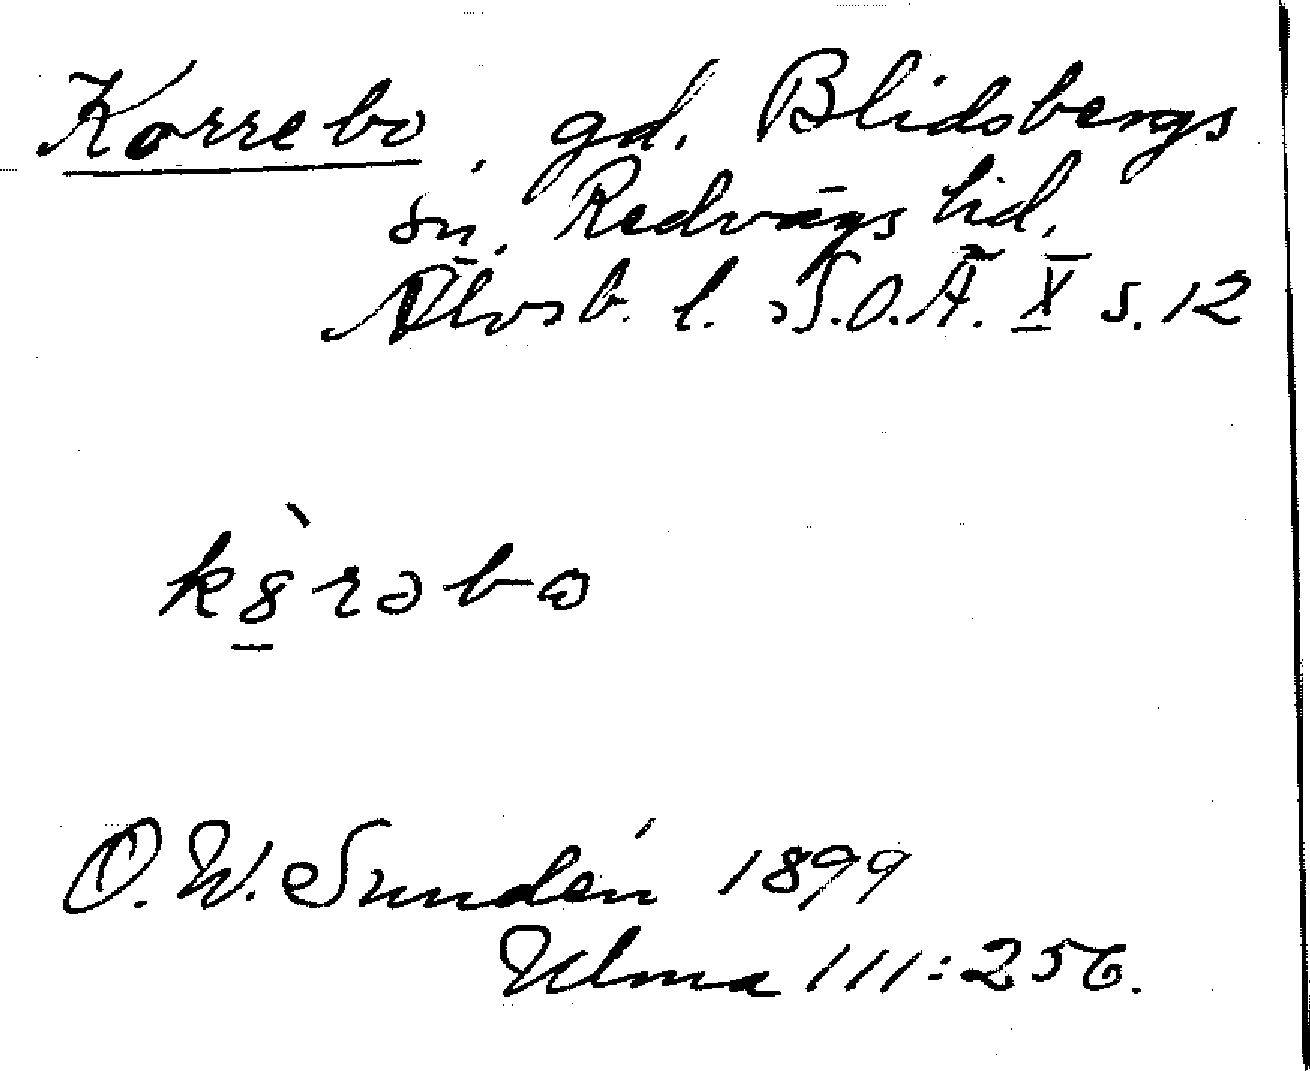 Korrebo, gd. Blidsbergs
sn. Redvägs hd.
Älvsb. l. S.O.Ä. X s. 12
k8̠̀rəbo
O. W. Sundén 1899
Ulma 111:256.